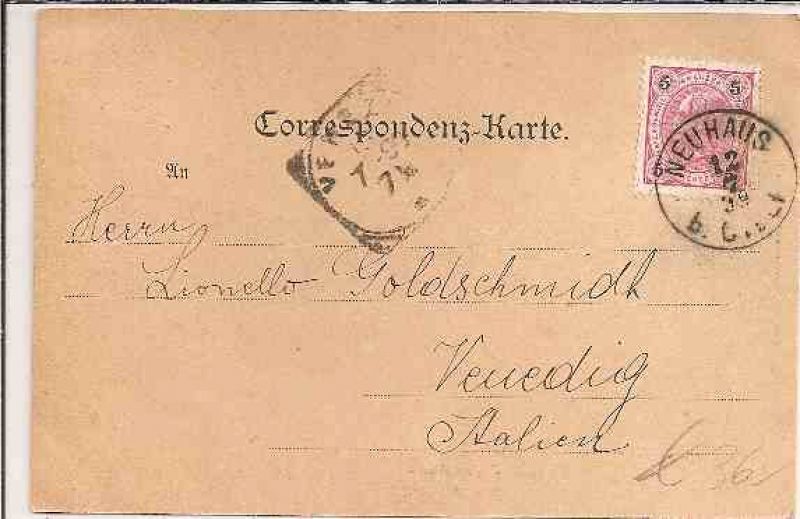 Correspondenz-Karte.
An
Herrn
Lionello Goldschmidt
Venedig
Italien
5 5
NEUHAUS
12